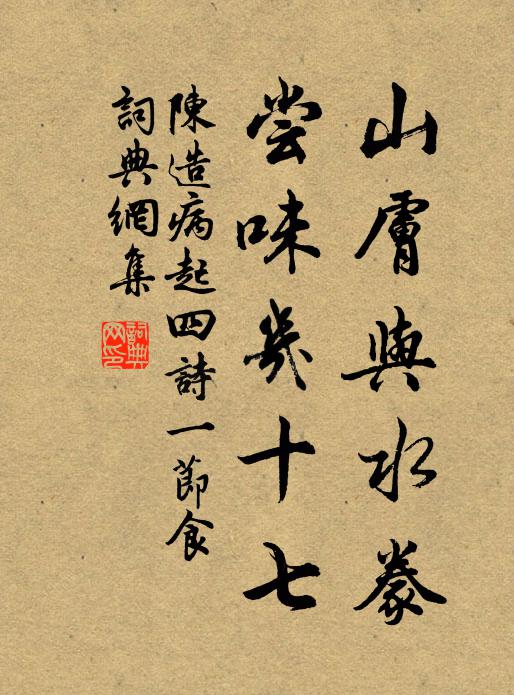 山膚與水豢
嘗味幾十七
陳造病起四詩一節食
詞典網集
詞典网印